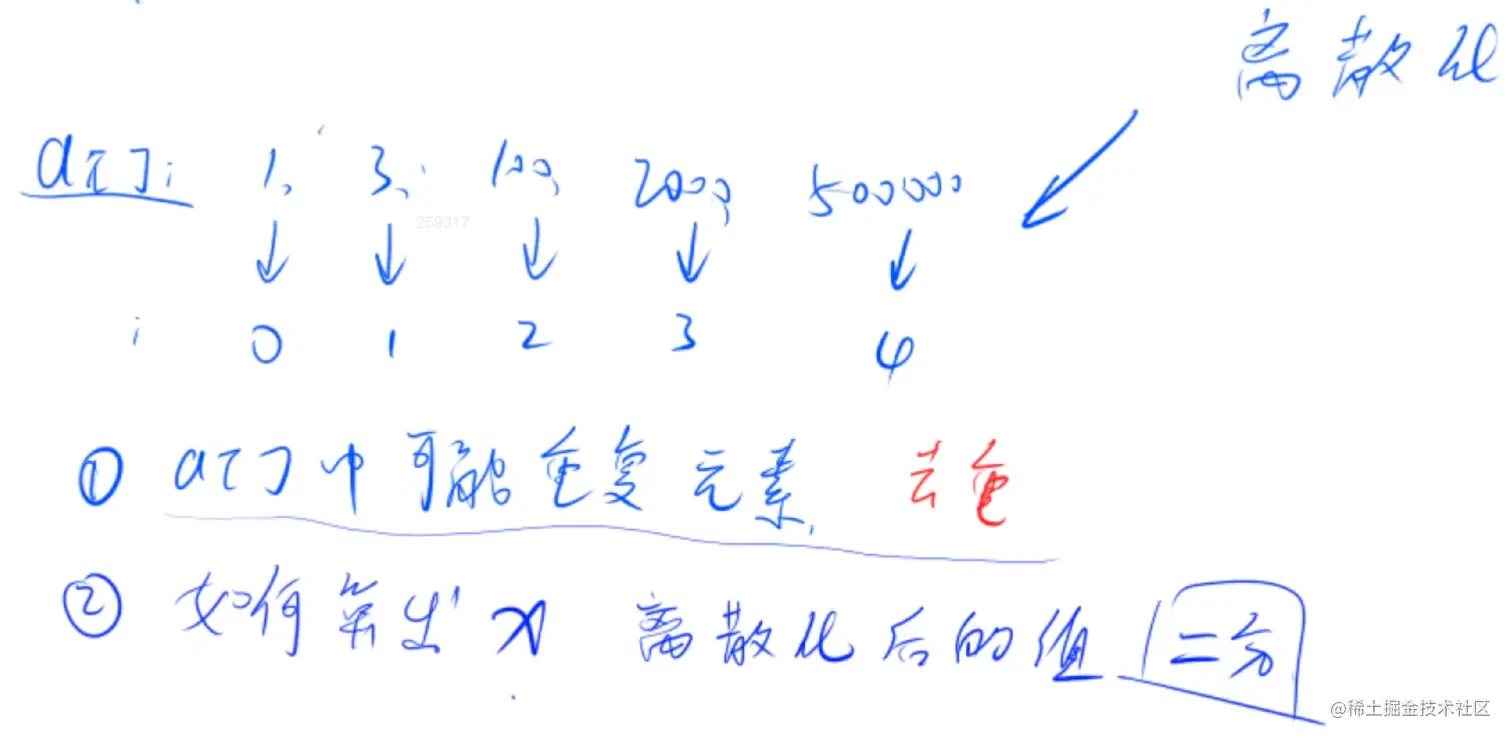 离散化
a[]: 1, 3, 100, 2000, 500000
259317
i 0 1 2 3 4
① a[]中可能重复元素, 去重
② 如何算出 x 离散化后的值 二分
@稀土掘金技术社区